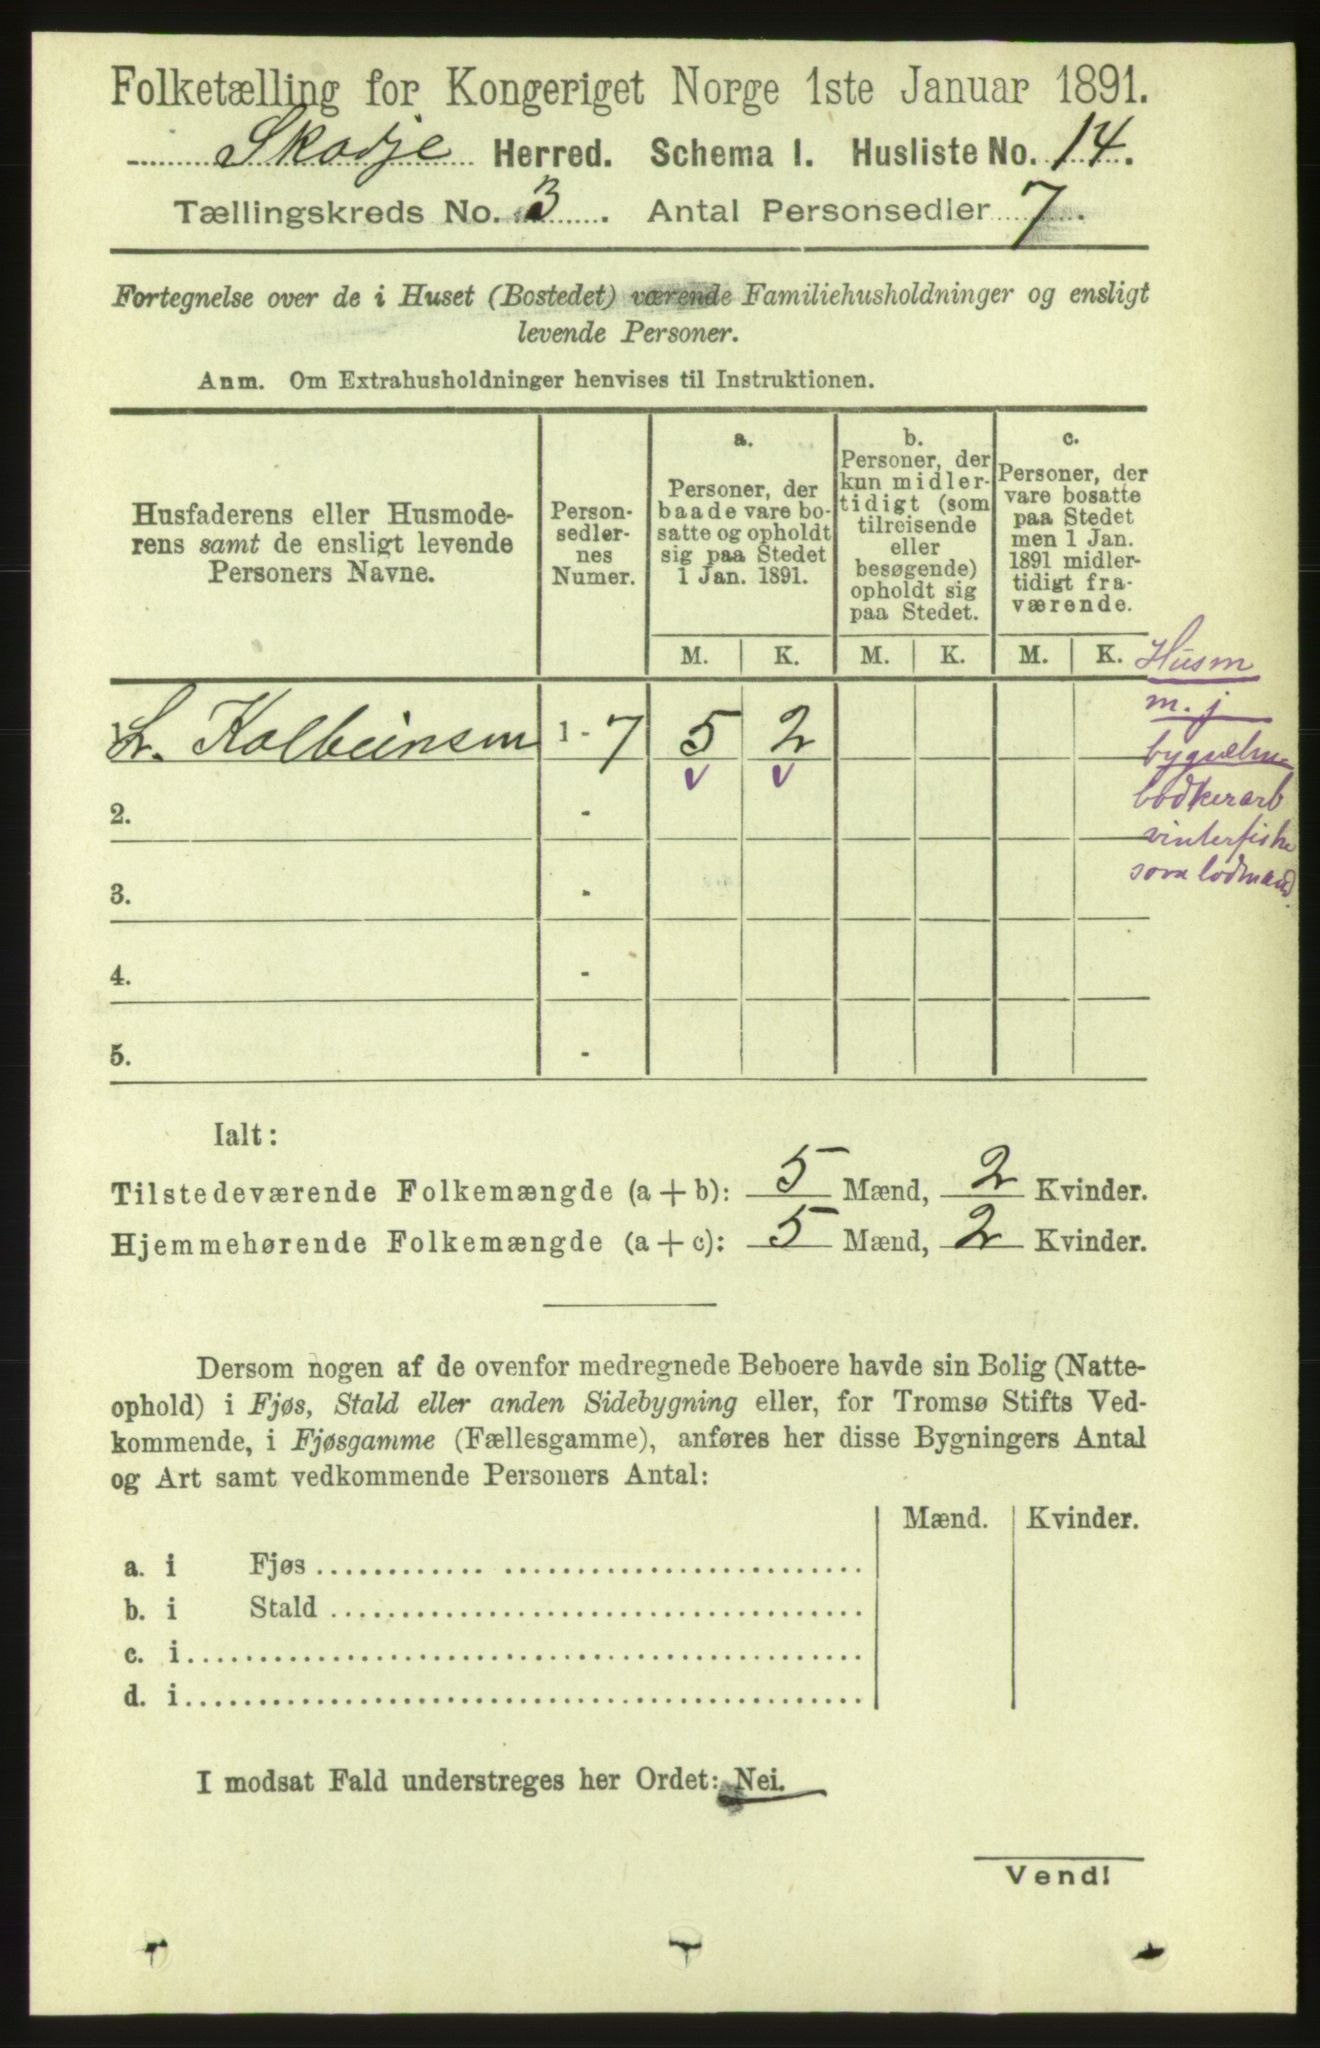 Folketælling for Kongeriget Norge 1ste Januar 1891.
Skodje Herred. Schema I. Husliste No. 14.
Tællingskreds No. 3. Antal Personsedler 7.
Fortegnelse over de i Huset (Bostedet) værende Familiehusholdninger og ensligt
levende Personer.
Anm. Om Extrahusholdninger henvises til Instruktionen.
Husfaderens eller Husmode-
rens samt de ensligt levende
Personers Navne.
Person-
sedler-
nes
Numer.
a.
Personer, der
baade vare bo-
satte og opholdt
sig paa Stedet
1 Jan. 1891.
b.
Personer, der
kun midler-
tidigt (som
tilreisende
eller
besøgende)
opholdt sig
paa Stedet.
c.
Personer, der
vare bosatte
paa Stedet
men 1 Jan.
1891 midler-
tidigt fra-
værende.
M. K. M. K. M. K.
Husm
m. j
L. Kolbeinsen 1 - 7 5 2
v v
bødkerarb
vinterfiske
som lodmand.
2. -
3. -
4. -
5. -
Ialt:
Tilstedeværende Folkemængde (a + b): 5 Mænd, 2 Kvinder.
Hjemmehørende Folkemængde (a + c): 5 Mænd, 2 Kvinder.
Dersom nogen af de ovenfor medregnede Beboere havde sin Bolig (Natte-
ophold) i Fjøs, Stald eller anden Sidebygning eller, for Tromsø Stifts Ved-
kommende, i Fjøsgamme (Fællesgamme), anføres her disse Bygningers Antal
og Art samt vedkommende Personers Antal:
Mænd. Kvinder.
a. i Fjøs
b. i Stald
c. i
d. i
I modsat Fald understreges her Ordet: Nei.
Vend!